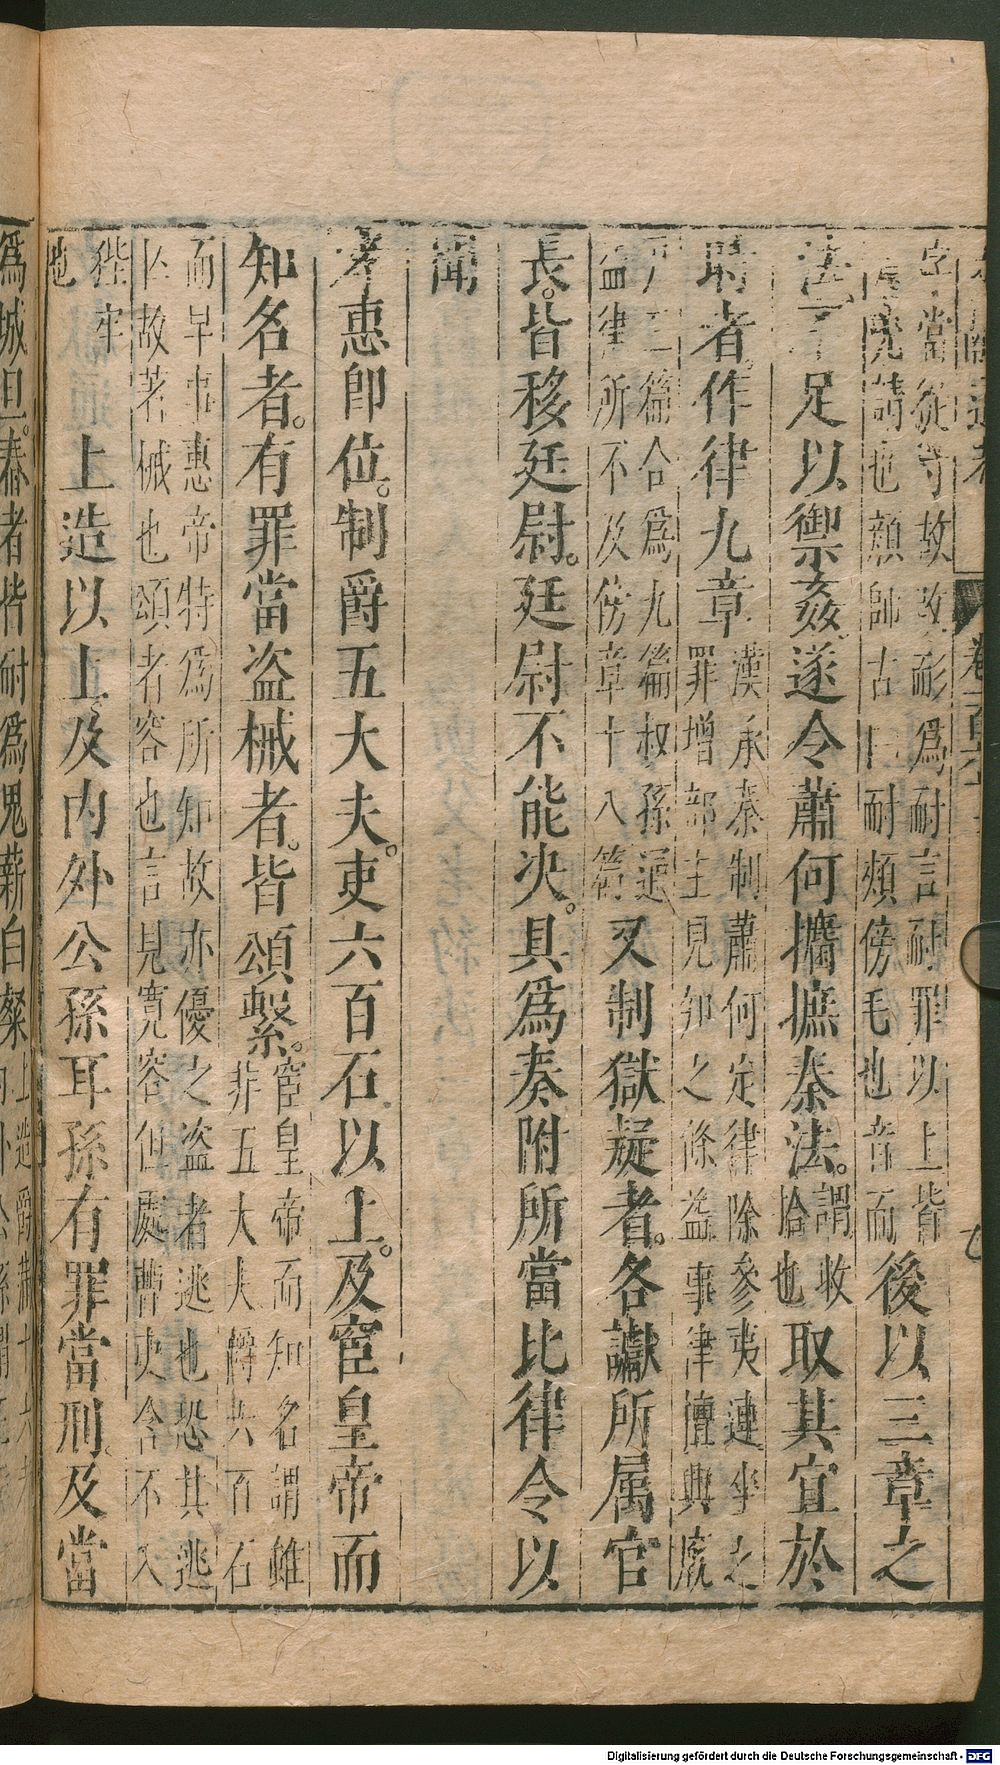 字當從寸故改耏爲耐言耐罪以上皆
請也顏師古曰耐頰傍毛也音而
後以三章之
法不足以御姦遂令蕭何攟摭秦法。
謂收
拾也
取其宜於
時者。作律九章
漢承秦制蕭何定律除參夷連坐之
罪增部主見知之條益事律擅興廐
戸三篇合爲九篇叔孫通
益律所不及傍章十八篇
又制獄疑者。各讞所属官
長。皆移廷尉。廷尉不能決。具爲奏附所當比律令以
聞
孝惠卽位。制爵五大夫。吏六百石以上。及宦皇帝而
知名者。有罪當盗械者。皆頌繫。
宦皇帝而知名謂雖
非五大夫爵六百石
而早事惠帝特爲所知故亦優之盗者逃也恐其逃
亾故著械也頌者容也言見寛容但處曹吏舍不入
狴牢
也
上造以上及内外公孫耳孫有罪當刑。及當
爲城旦。舂者皆耐爲鬼薪白粲
Digitalisierung gefördert durch die Deutsche Forschungsgemeinschaft - DFG